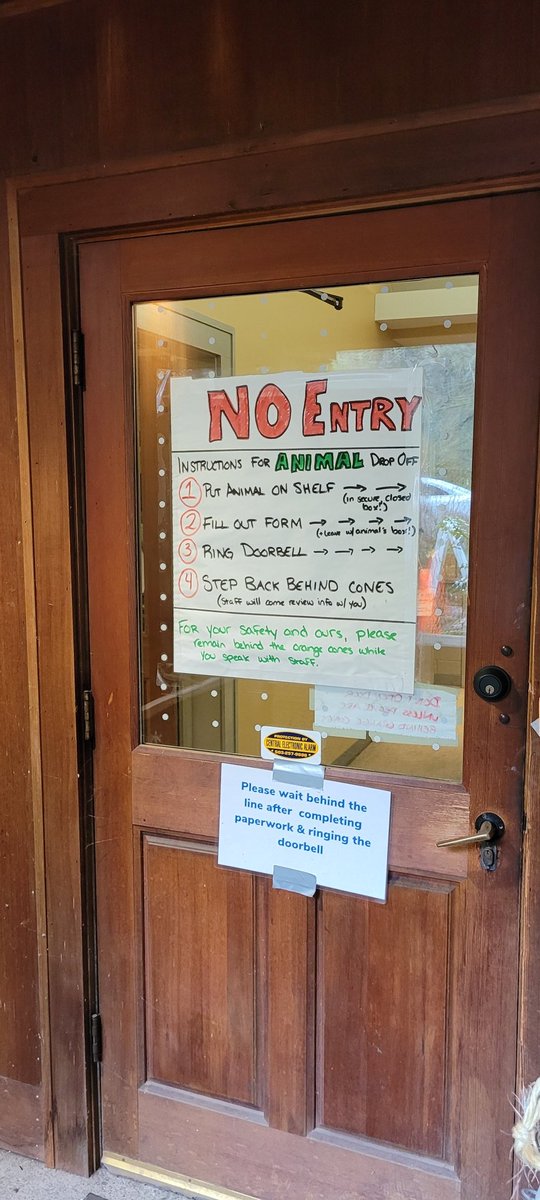 NO ENTRY
INSTRUCTIONS FOR ANIMAL DROP OFF
1 PUT ANIMAL ON SHELF → →
(in secure, closed
box!)
2 FILL OUT FORM → → → →
(+ leave w/ animal's box!)
3 RING DOORBELL → → → →
4 STEP BACK BEHIND CONES
(Staff will come review info w/ you)
FOR your safety and ours, please
remain behind the orange cones while
you speak with staff.
PROTECTION BY
CENTRAL ELECTRONIC ALARM
Please wait behind the
line after completing
paperwork & ringing the
doorbell